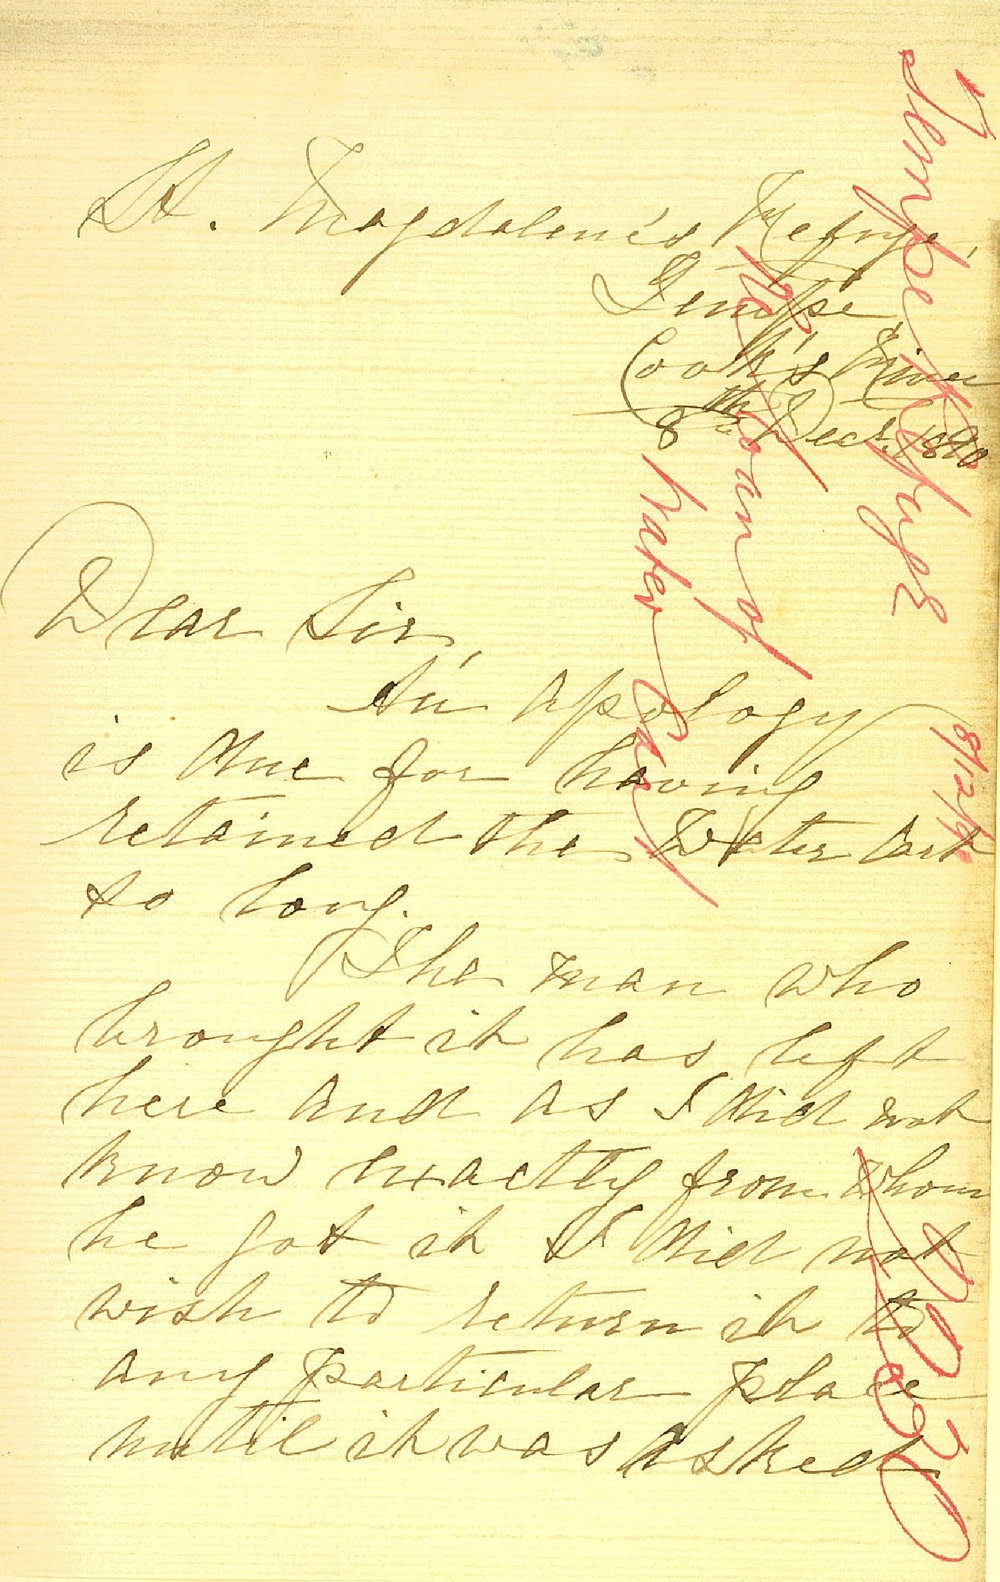 St. Magdalene's Refuge,
Tempe,
Cook's River
8th Decr. 1890
Dear Sir,
An apology
is due for having
retained the Water Cart
so long.
The man who
brought it has left
here and as I did not
know exactly from whom
he got it I did not
wish to return it to
any particular place
until it was asked
Tempe Refuge
re loan of
Water Cart
8/12/90